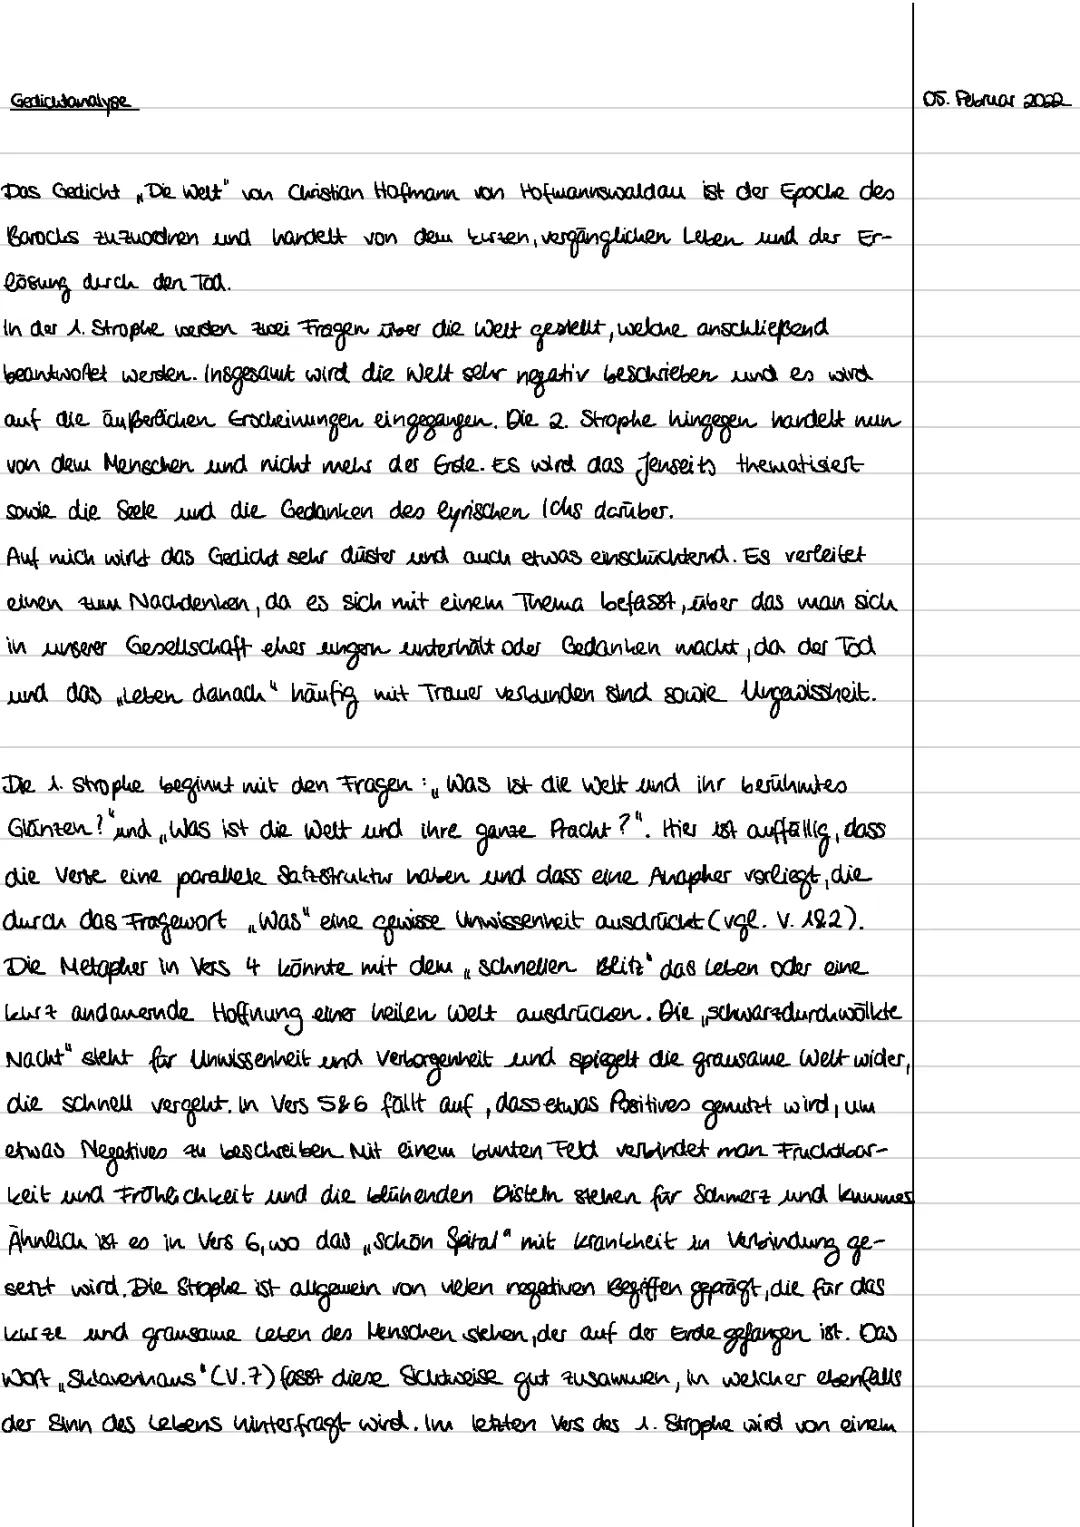 Gedichtanalyse
05. Februar 2022
Das Gedicht „Die Welt" von Christian Hofmann von Hofmannswaldau ist der Epoche des
Barocks zuzuordnen und handelt von dem kurzen, vergänglichen Leben und der Er-
lösung durch den Tod.
In der 1. Strophe werden zwei Fragen über die Welt gestellt, welche anschließend
beantwortet werden. Insgesamt wird die Welt sehr negativ beschrieben und es wird
auf die äußerlichen Erscheinungen eingegangen. Die 2. Strophe hingegen handelt nun
von dem Menschen und nicht mehr der Erde. Es wird das Jenseits thematisiert
sowie die Seele und die Gedanken des lyrischen Ichs darüber.
Auf mich wirkt das Gedicht sehr düster und auch etwas einschüchternd. Es verleitet
einen zum Nachdenken, da es sich mit einem Thema befasst, über das man sich
in unserer Gesellschaft eher ungern unterhält oder Gedanken macht, da der Tod
und das „Leben danach" häufig mit Trauer verbunden sind sowie Ungewissheit.
Die 1. Strophe beginnt mit den Fragen: „Was ist die Welt und ihr berühmtes
Glänzen?" und „Was ist die Welt und ihre ganze Pracht?". Hier ist auffällig, dass
die Verse eine parallele Satzstruktur haben und dass eine Anapher vorliegt, die
durch das Fragewort „Was" eine gewisse Unwissenheit ausdrückt (vgl. V. 1&2).
Die Metapher in Vers 4 könnte mit dem „schnellen Blitz" das Leben oder eine
kurz andauernde Hoffnung einer heilen Welt ausdrücken. Die „schwarzdurchwölkte
Nacht" steht für Unwissenheit und Verborgenheit und spiegelt die grausame Welt wider,
die schnell vergeht. In Vers 5&6 fällt auf, dass etwas Positives genutzt wird, um
etwas Negatives zu beschreiben. Mit einem bunten Feld verbindet man Fruchtbar-
keit und Fröhlichkeit und die blühenden Disteln stehen für Schmerz und Kummer
Ähnlich ist es in Vers 6, wo das „schön Spital" mit Krankheit in Verbindung ge-
setzt wird. Die Strophe ist allgemein von vielen negativen Begriffen geprägt, die für das
kurze und grausame Leben des Menschen stehen, der auf der Erde gefangen ist. Das
Wort „Sklavenhaus" (V.7) fasst diese Sichtweise gut zusammen, in welcher ebenfalls
der Sinn des Lebens hinterfragt wird. Im letzten Vers der 1. Strophe wird von einem